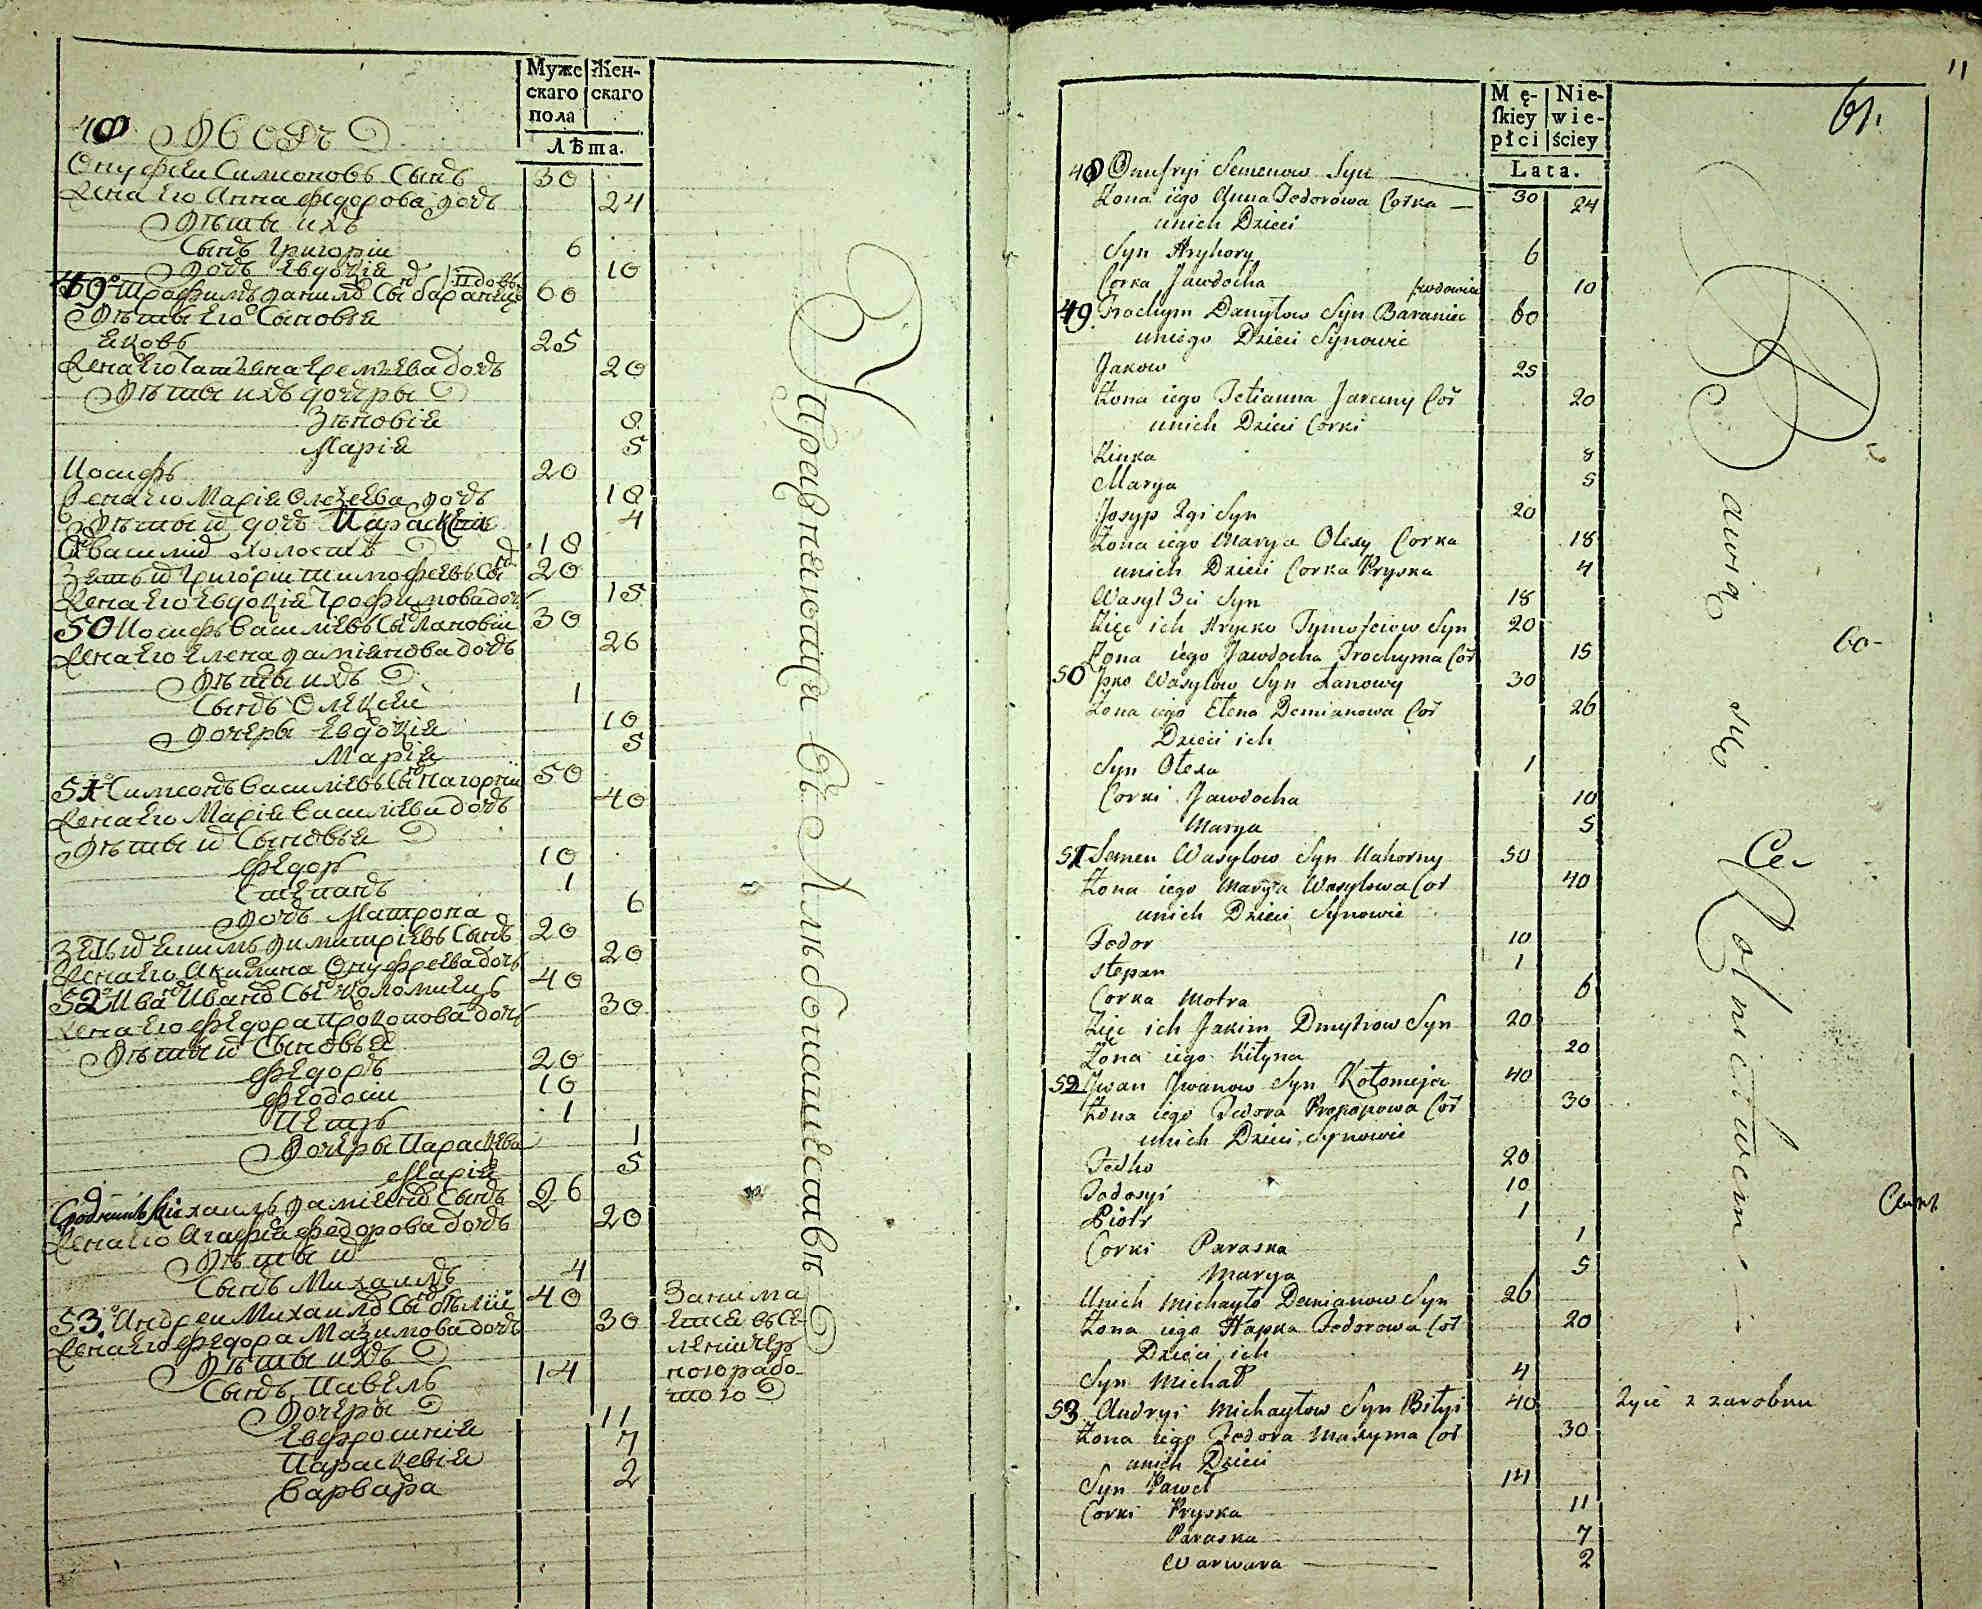 Муже
скаго
пола
Жен-
скаго
Лѣта.
48 Дворъ
Онуфреи Симеоновъ Сынъ 30
Жена Его Анна Федорова дочь 24
Дѣты ихъ
Сынъ Григорій 6
Дочь Евдокія 10
49 Трофимъ Данилов Сынъ баранецъ вдовъ 60
Дѣты Его Сыновья
Яковъ 25
Жена Его Татьяна Еремѣева дочь 20
Дѣты ихъ дочеры
Зѣновія 8
Марія 5
Иосифъ 20
Жена Его Марія Олексѣева дочь 18
Дѣты и дочь Параскевія 4
Василій холостъ 18
Зять и Григорій тимофеевъ Сынъ 20
Жена Его Евдокія Трофимова дочь 15
50 Иосифъ Василіевъ Сынъ Лановій 30
Жена Его Елена даміянова дочь 26
Дѣты ихъ
Сынъ Олексей 1
Дочеры Евдокія 10
Марія 5
51 Симеонъ Василіевъ Сынъ Нагорній 50
Жена Его Марія Василіева дочь 40
Дѣты и Сыновья
Федор 10
Стефанъ 1
Дочь Матрона 6
Зять и Екимъ димитріевъ Сынъ 20
Жена Его Акилина Онуфреева дочь 20
52 Иван Иванов Сынъ Коломиецъ 40
Жена Его Федора прокопова дочь 30
Дѣты и Сыновья
Федоръ 20
Феодосій 10
Петръ 1
Дочеры Параскева 1
Марія 5
Михаилъ даміянов Сынъ 26
Жена Его Агафія федорова дочь 20
Дѣты и
Сынъ Михаилъ 4
53. Андреи Михаилов Сынъ бѣлій 40
Жена Его Федора Мазимова дочь 30
Дѣты ихъ
Сынъ Павелъ 14
Дочеры
Евфросинія 11
Параскевія 7
Варвара 2
Упражняющи въ Хлѣбопашествѣ
Занима
Ется въ се
леніи чер
ною рабо-
тою
11
61.
M ę-
ſkiey
płci
Nie-
wie-
ściey
Lata.
48 Onufryi Semenow Syn 30
Żona iego Anna Fedorowa Corka 24
unich Dzieci
Syn Hryhory 6
Corka Jawdocha 10
49 Trochym Danyłow Syn Baraniec wdowiec 60
uniego Dzieci Synowie
Jakow 25
Żona iego Tetianna Jaremy Cor 20
unich Dzieci Corki
Zinka 8
Marya 5
Josyp 2gi Syn 20
Żona iego Marya Olexy Corka 18
unich Dzieci Corka Pryska 4
Wasyl 3ci Syn 18
Zięc ich Hrycko Tymofiejow Syn 20
Żona iego Jawdocha Trochyma Cor 15
50 Jpko Wasylow Syn Łanowy 30
Żona iego Elena Demianowa Cor 26
Dzieci ich
Syn Olexa 1
Corki Jawdocha 10
Marya 5
51 Semen Wasylow Syn Nahorny 50
Żona iego Marya Wasylowa Cor 40
unich Dzieci Synowie
Fedor 10
Stepan 1
Corka Motra 6
Zięc ich Jakim Dmytrow Syn 20
Żona iego Kiłyna 20
52 Jwan Jwanow Syn Kołomejec 40
Żona iego Fedora Prokopowa Cor 30
unich Dzieci Synowie
Fedko 20
Fodosyi 10
Piotr 1
Corki Paraska 1
Marya 5
Unich Michayło Demianow Syn 26
Żona iego Hapka Fedorowa Cor 20
Dzieci ich
Syn Michał 4
53 Andryi Michayłow Syn Biłyi 40
Żona iego Fedora Maxyma Cor 30
unich Dzieci
Syn Paweł 14
Corki Pryska 11
Paraska 7
Warwara 2
Bawią się Rolnictwem
Żyie z zarobku